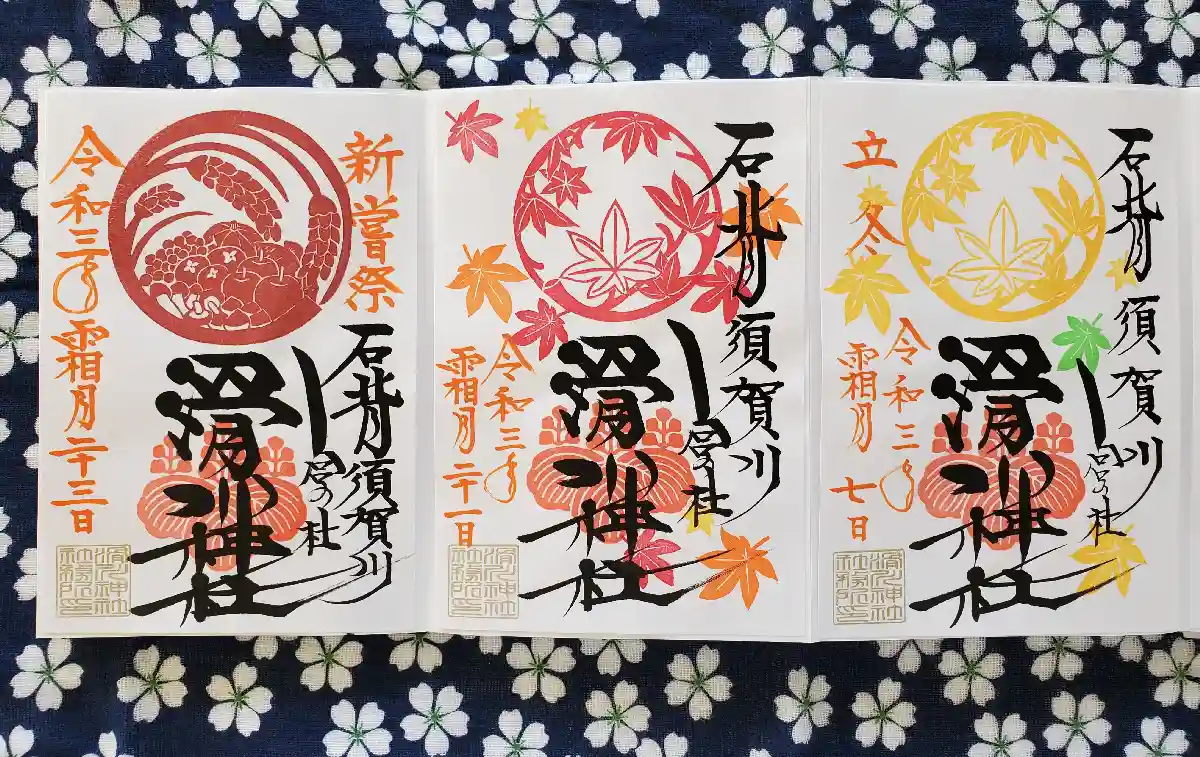 石背 須賀川
宮の杜
滑川神社
立冬
令和三年
霜月七日
滑川神社
社務所之印
石背 須賀川
宮の杜
滑川神社
令和三年
霜月二十一日
滑川神社
社務所之印
新嘗祭
石背 須賀川
宮の杜
滑川神社
令和三年霜月二十三日
滑川神社
社務所之印